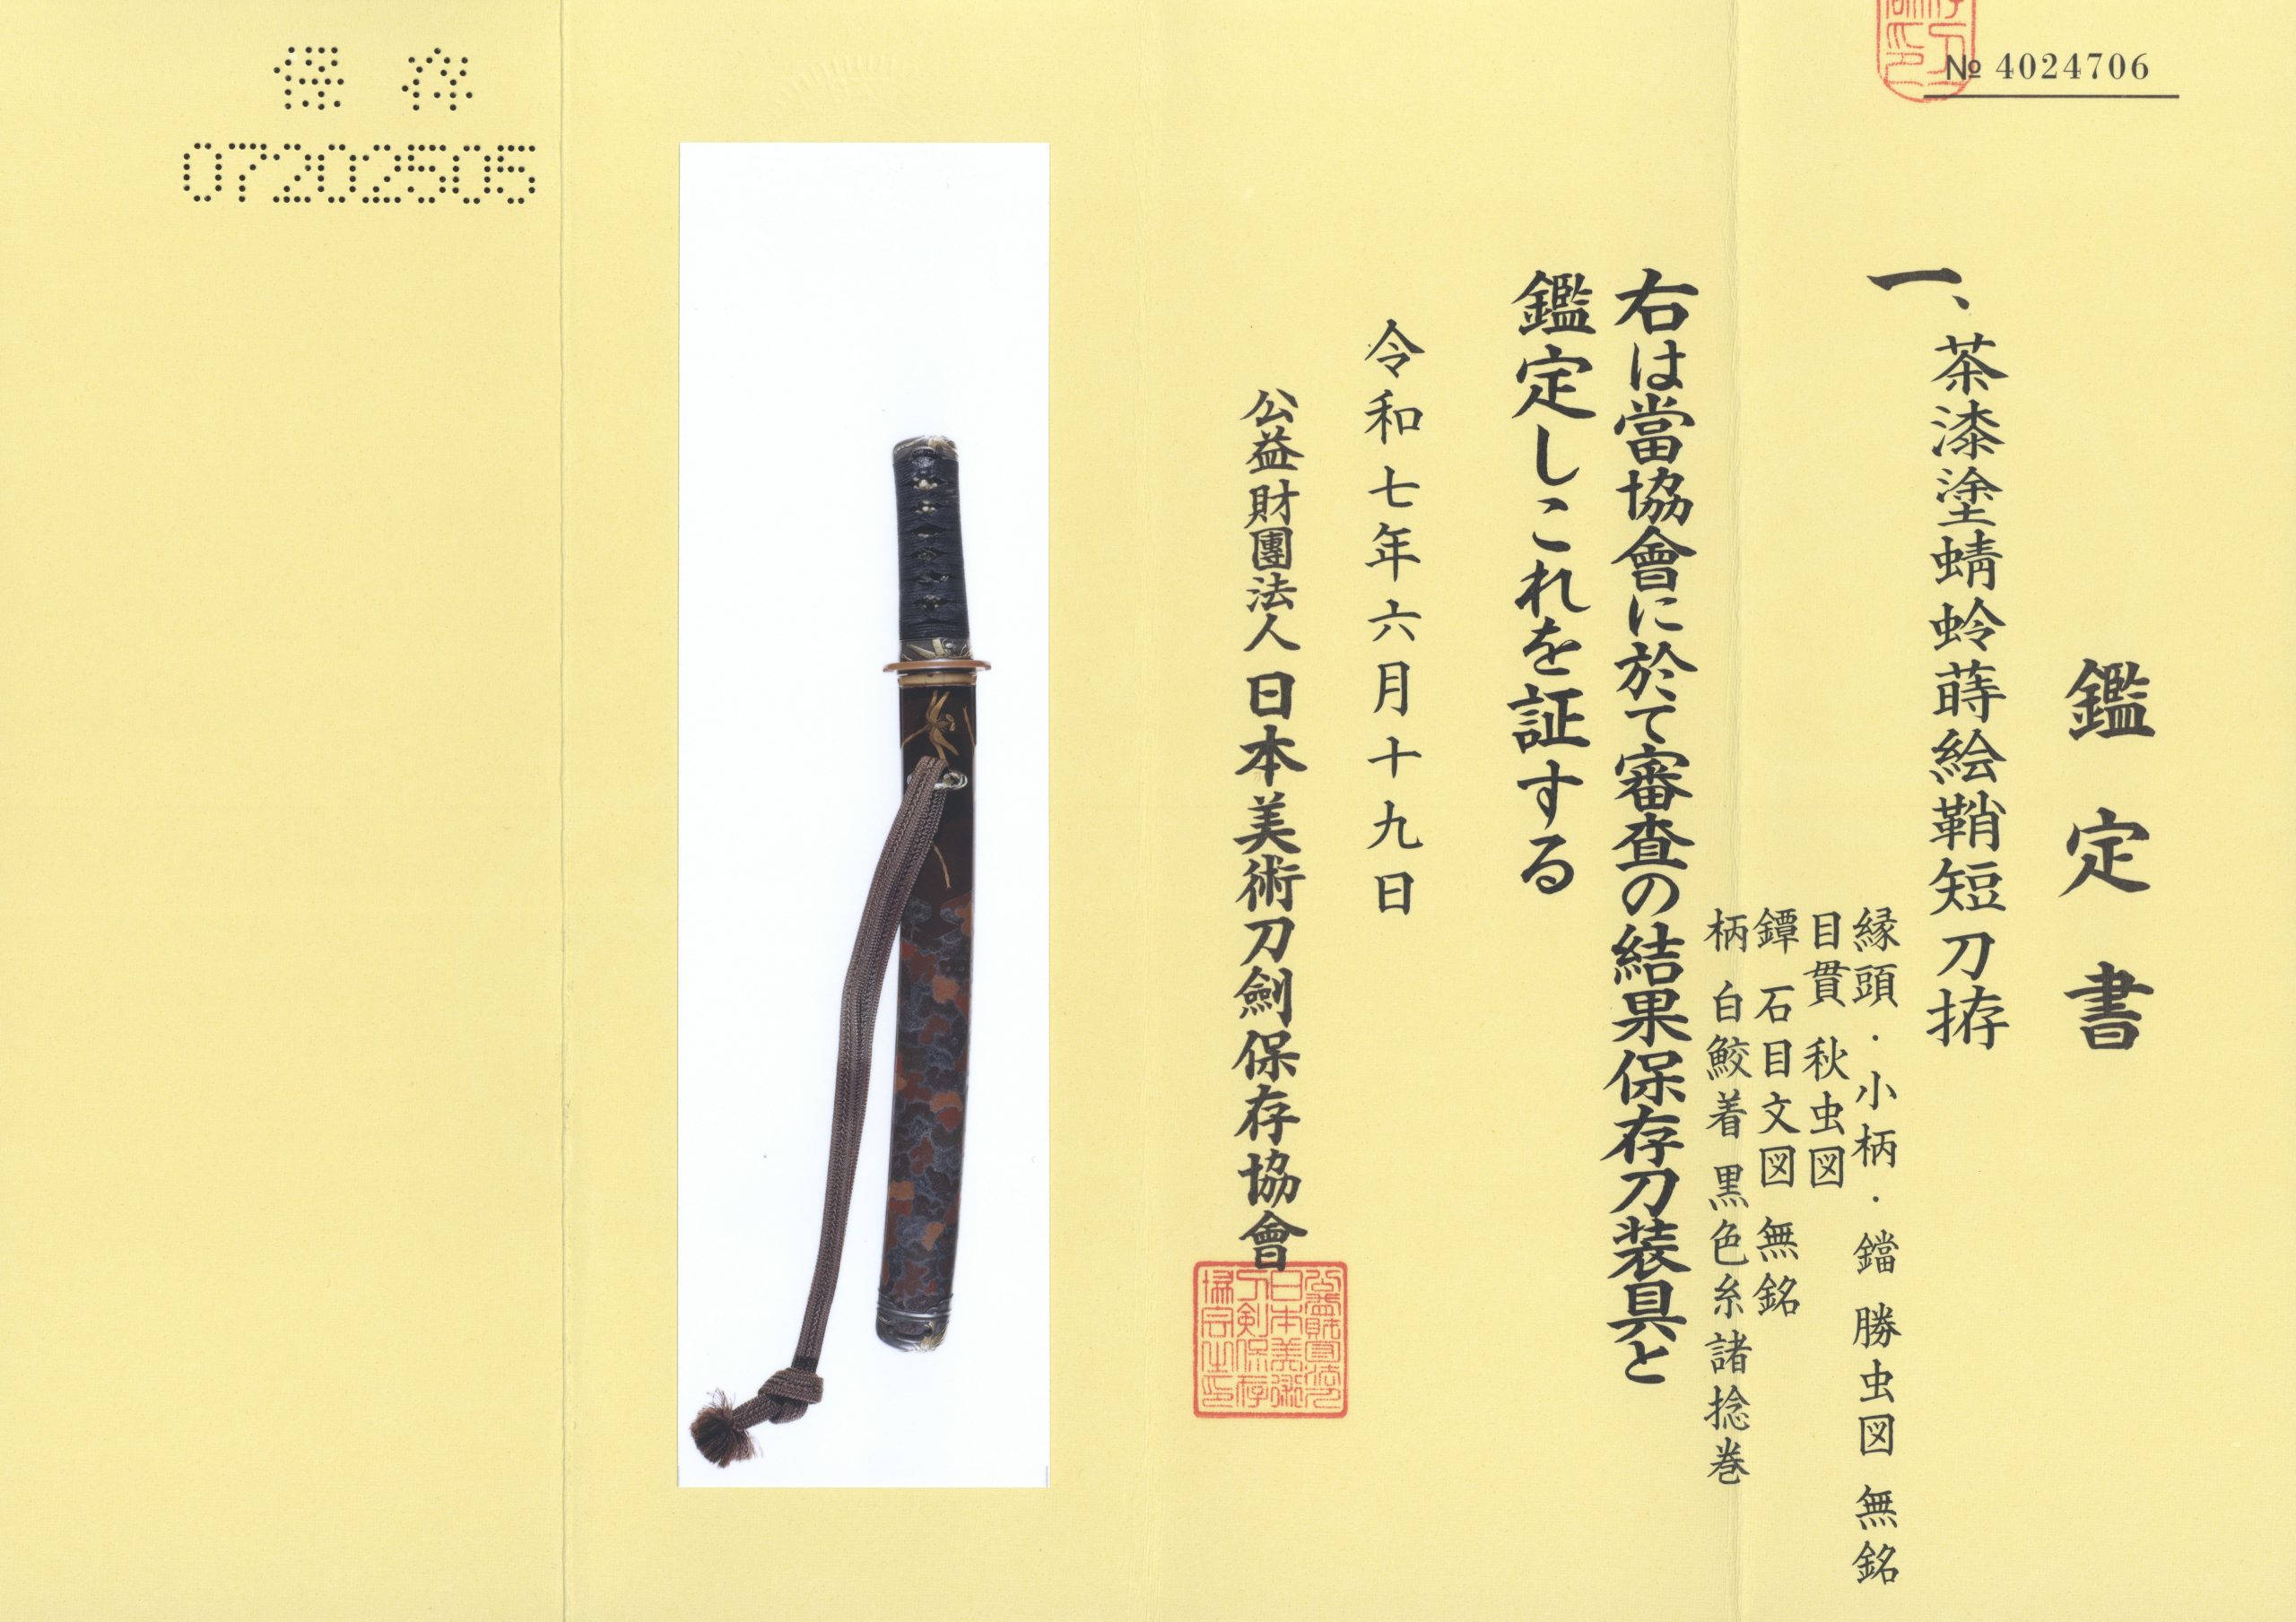 № 4024706
鑑定書
一、茶漆塗蜻蛉蒔絵鞘短刀拵
縁頭・小柄・鐺 勝虫図 無銘
目貫 秋虫図
鐔 石目文図 無銘
柄 白鮫着 黒色糸諸捻巻
右は當協會に於て審査の結果保存刀装具と
鑑定しこれを証する
令和七年六月十九日
公益財團法人 日本美術刀劍保存協會
保存
07202505